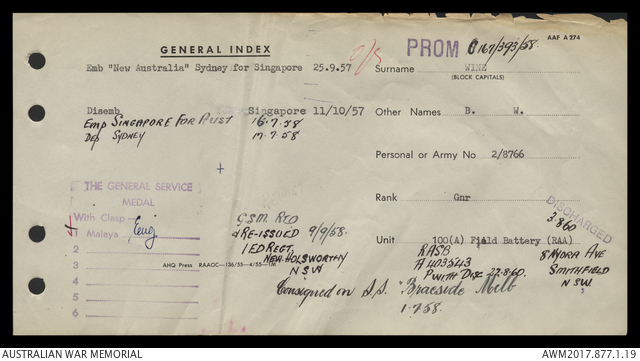 GENERAL INDEX
PROM C167/393/58.
AAF A 274
Emb "New Australia" Sydney for Singapore 25.9.57
Surname WINZ
(BLOCK CAPITALS)
Disemb Singapore 11/10/57
Other Names B. W.
Emb SINGAPORE FOR AUST 16.7.58
Dep SYDNEY 17.7.58
Personal or Army No 2/8766
THE GENERAL SERVICE
MEDAL
With Clasp
1 Malaya
2
3
4
5
6
GSM. RTD
& RE-ISSUED 9/9/58.
1 FD REGT.
NEW HOLSWORTHY
NSW
Rank Gnr
Unit 100(A) Field Battery (RAA)
DISCHARGED
3.8.60
RASB
A403543
P with Disc 22.8.60.
8 NYORA AVE
SMITHFIELD
NSW.
AHQ Press RAAOC—136/55—4/55—1M
Consigned on S.S. "Braeside Melb
1.7.58.
AUSTRALIAN WAR MEMORIAL
AWM2017.877.1.19